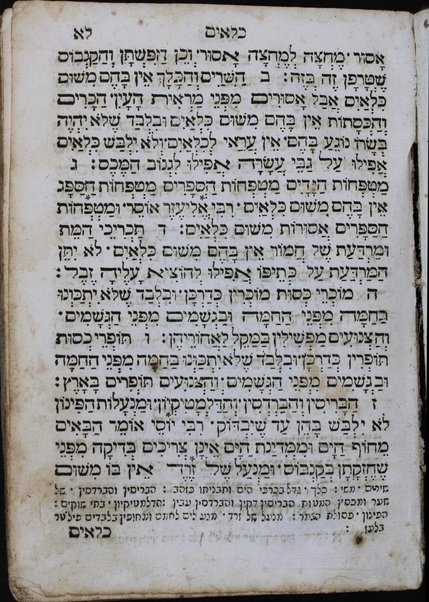 כלאים לא
אסור׳ מחצה למחצה אסור׳ וכן הפשתן והקנבוס
שטרפן זה בזה׃ ב השירים והכלך אין בהם משום
כלאים אבל אסורים מפני מראית העין׳ הכרים
והכסתות אין בהם משום כלאים׳ ובלבד שלא יהיה
בשרו נוגע בהם׳ אין עראי לכלאים׳ ולא ילבש כלאים
אפילו על גבי עשרה אפילו לגנוב המכס׃ ג
מטפחות הידים מטפחות הספרים מטפחות הספג
אין בהם משום כלאים׳ רבי אליעזר אוסר׳ ומטפחות
הספרים אסורות משום כלאים׃ ד תכריכי המת
ומרדעת של חמור אין בהם משום כלאים׳ לא יתן
המרדעת על כתיפו אפילו להוציא עליה זבל׃
ה מוכרי כסות מוכרין כדרכן׳ ובלבד שלא יתכונו
בחמה מפני החמה ובגשמים מפני הגשמים׳
והצנועים מפשילין במקל לאחוריהם׃ ו תופרי כסות
תופרין כדרכן׳ ובלבד שלא יתכונו בחמה מפני החמה
ובגשמים מפני הגשמים׳ והצנועים תופרים בארץ׃
ז הבריסין והברדסין והדלמטיקון׳ ומנעלות הפינון
לא ילבש בהן עד שיבדוק׳ רבי יוסי אומר הבאים
מחוף הים וממדינת הים אינן צריכים בדיקה מפני
שחזקתן בקנבוס׳ ומנעל של זרד אין בו משום
כלך׳ גדל בכרכי הים ותבניתו כזהב׃ הבריסין והברדסין׳ של
שער ותכסין המטות הבריסין דקין והברדסין עבין׃ הדלמטיקיון׳ בתי שוקים׃
הפינון׳ פסולת הצמר׃ מנעל של זרד׳
בלעז׃ כלאים